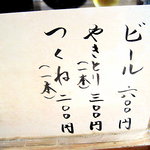 ビール 六〇〇円
やきとり(一本) 三〇〇円
つくね(一本) 二〇〇円